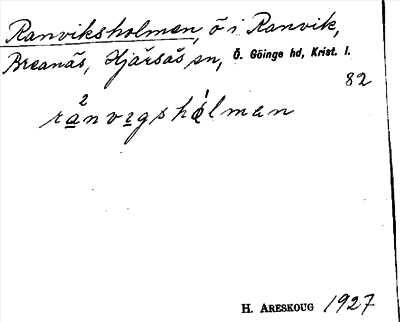 Ranviksholmen, ö i Ranvik,
Breanäs, Hjärsås sn, Ö. Göinge hd, Krist. l.
82
ra²nvıgshólman
H. ARESKOUG 1927